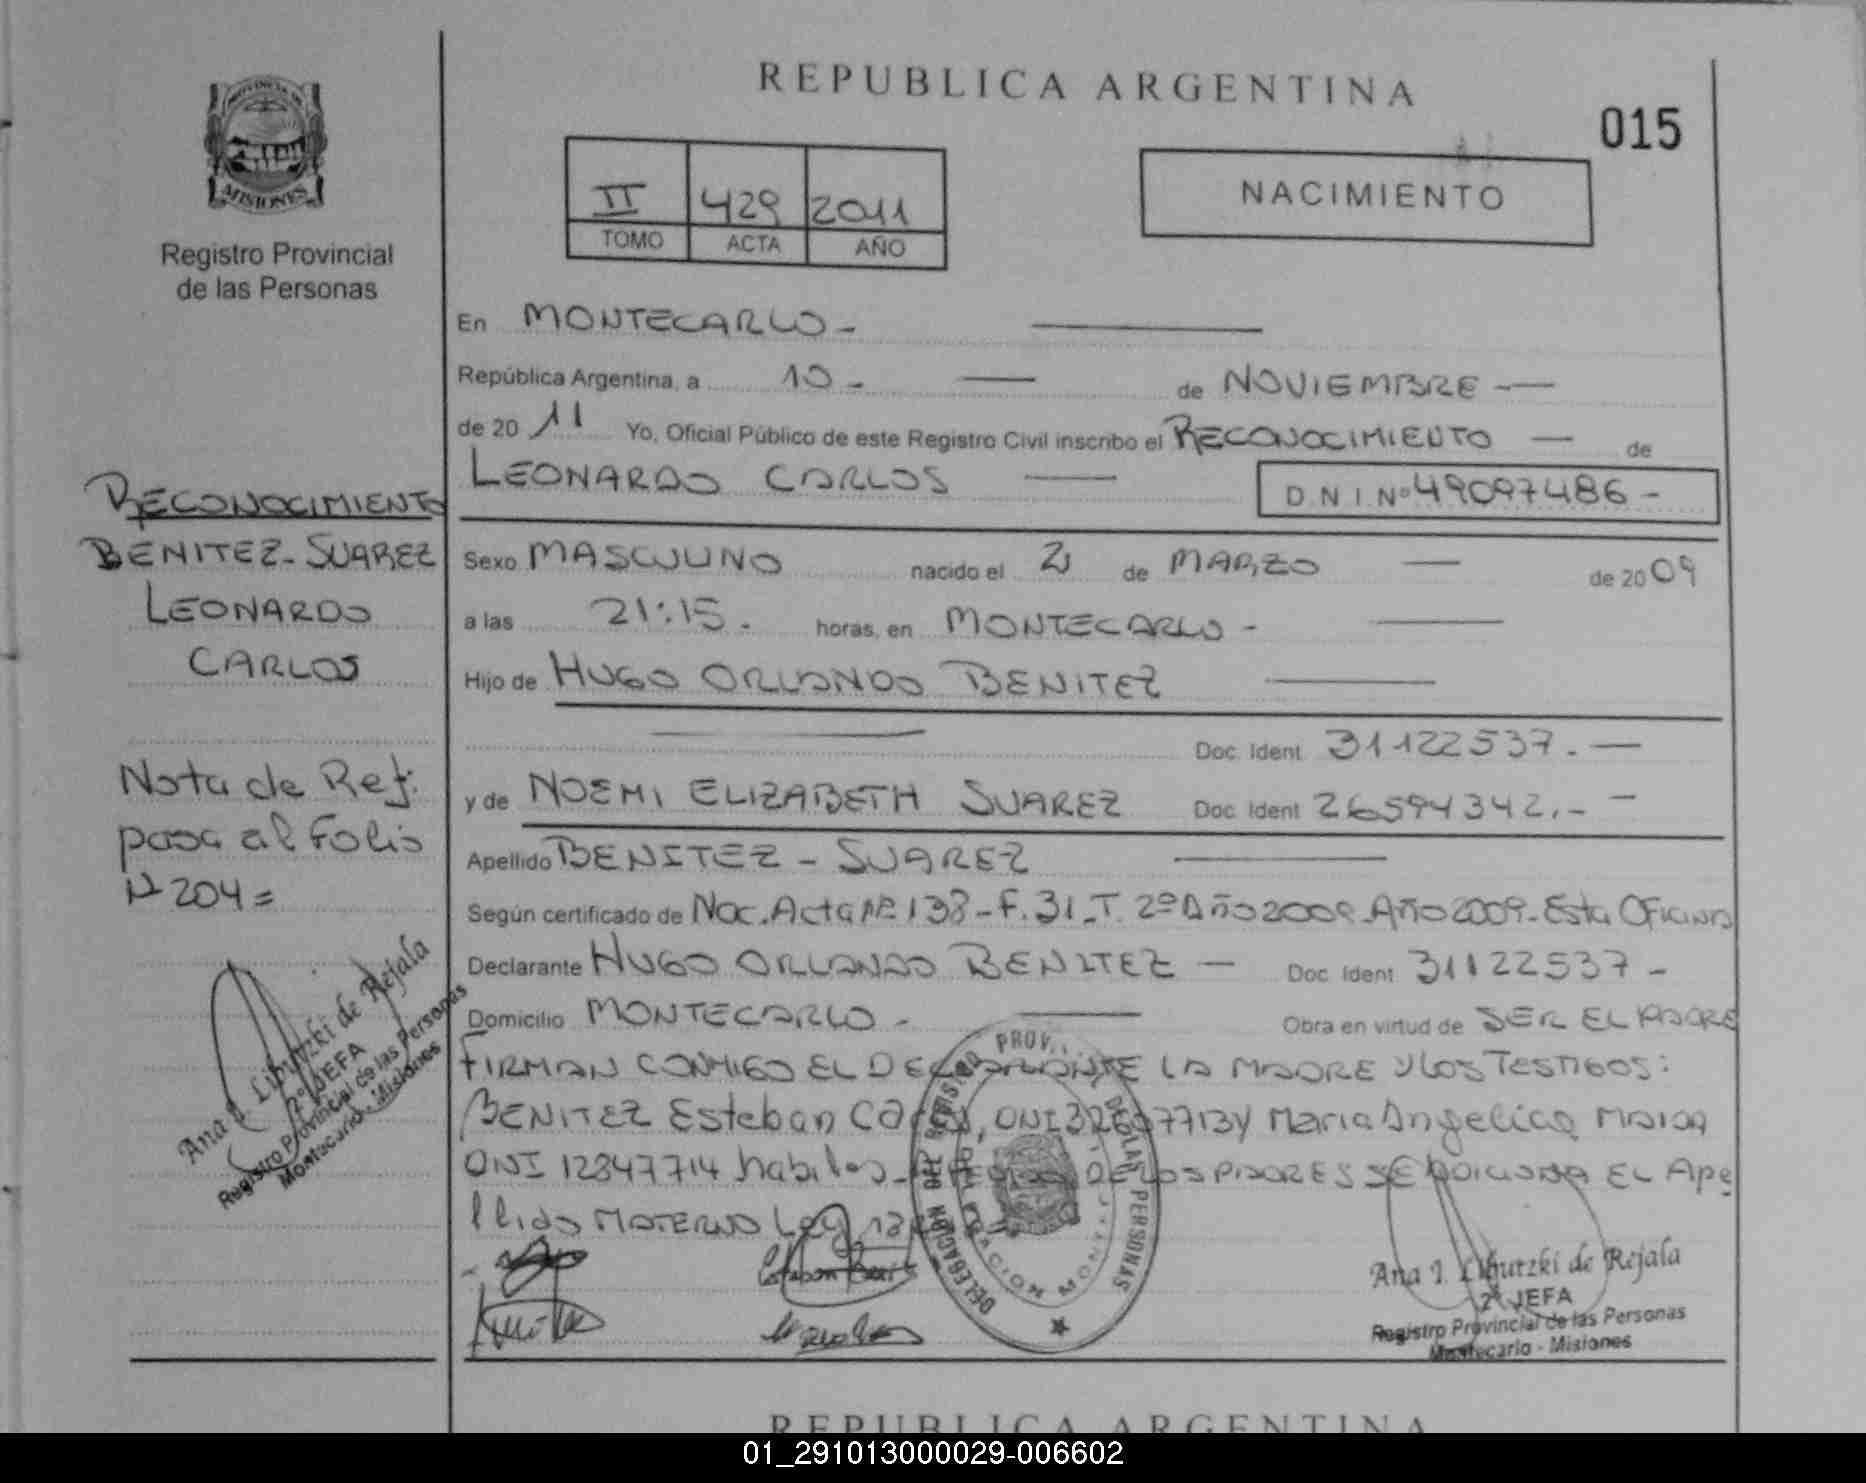 REPUBLICA ARGENTINA
015
PROVINCIA DE
MISIONES
Registro Provincial
de las Personas
II 429 2011
TOMO ACTA AÑO
NACIMIENTO
En MONTECARLO -
República Argentina, a 10 - de NOVIEMBRE -
de 20 11 Yo, Oficial Público de este Registro Civil inscribo el RECONOCIMIENTO de
LEONARDO CARLOS D.N.I.Nº 49097486 -
RECONOCIMIENTO
BENITEZ - SUAREZ
LEONARDO
CARLOS
Sexo MASCULINO nacido el 2 de MARZO de 20 09
a las 21:15. horas, en MONTECARLO -
Hijo de HUGO ORLANDO BENITEZ
Doc. Ident. 31122537. -
y de NOEMI ELIZABETH SUAREZ Doc. Ident 26594342. -
Apellido BENITEZ - SUAREZ
Según certificado de Nac. Acta Nº 138 - F. 31 - T. 2º Año 2009. Año 2009 - Esta OFICINA
Declarante HUGO ORLANDO BENITEZ - Doc. Ident. 31122537 -
Domicilio MONTECARLO - Obra en virtud de SER EL PADRE
FIRMAN CONMIGO EL DECLARANTE LA MADRE Y LOS TESTIGOS:
BENITEZ Esteban DNI Y Maria Angelica
DNI 12847714 habiles - DE LOS PADRES SE ADICIONA EL Ape
llido MATERNO Ley
Nota de Ref:
pasa al Folio
Nº 204 =
Ana I. Liutzki de Rejala
2º JEFA
Registro Provincial de las Personas
Montecarlo - Misiones
DELEGACION DEL REGISTRO PROV. DE LAS PERSONAS
Ana I. Liutzki de Rejala
2º JEFA
Registro Provincial de las Personas
Montecarlo - Misiones
REPUBLICA ARGENTINA
01_291013000029-006602